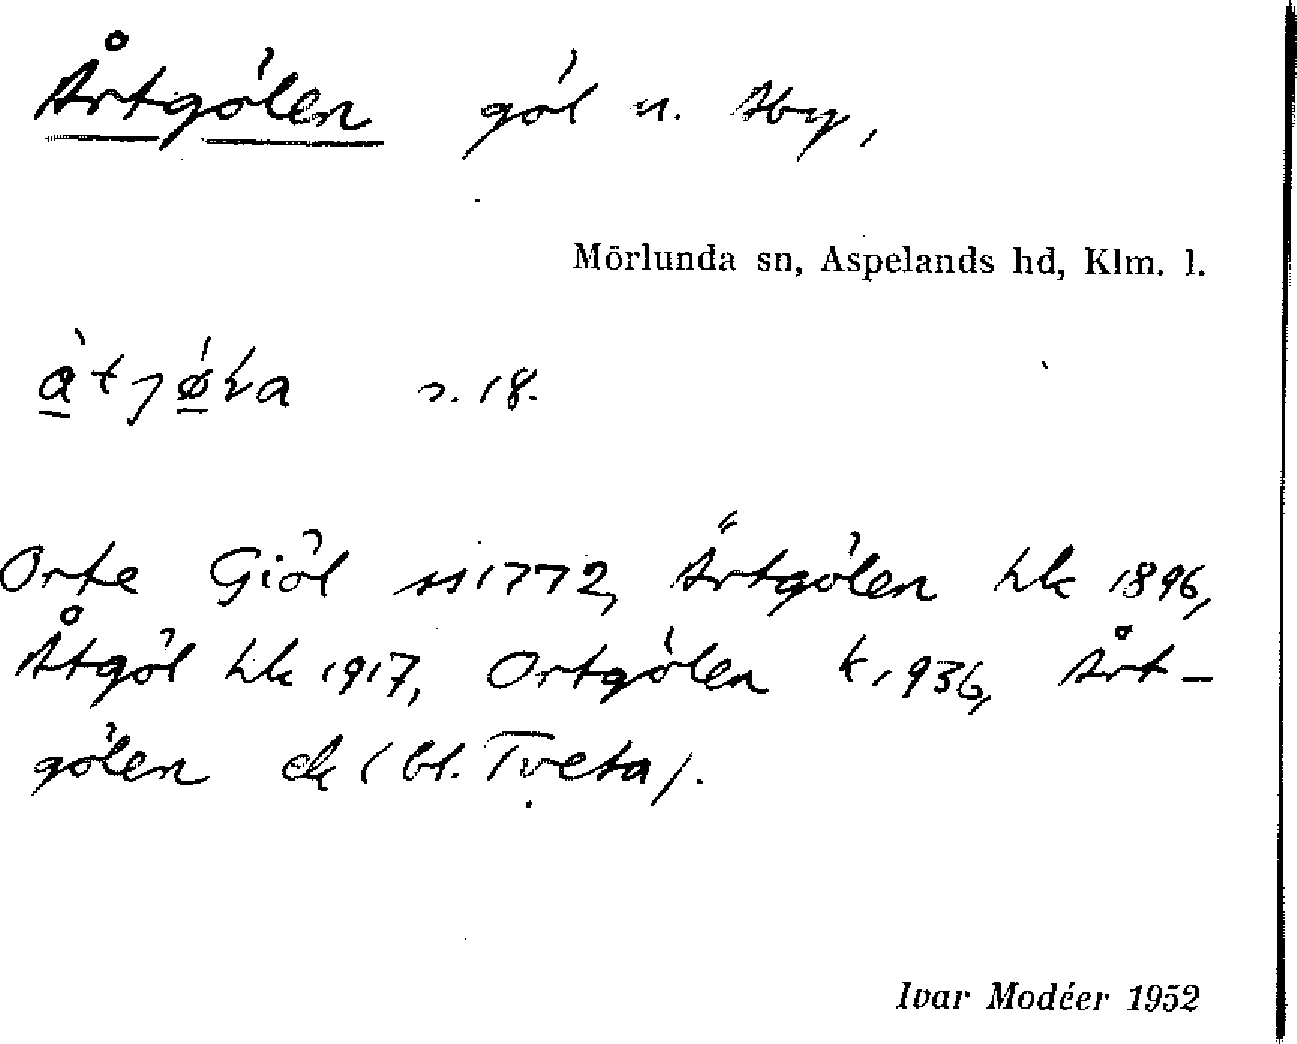 Årtgölen göl n. Åby,
Mörlunda sn, Aspelands hd, Klm. l.
s. 18.
Orte Giöl ss 1772, Ärtgölen hk 1896,
Åtgöl hk 1917, Ortgölen k 1936, Årt-
gölen ek (bl. Tveta).
Ivar Modéer 1952